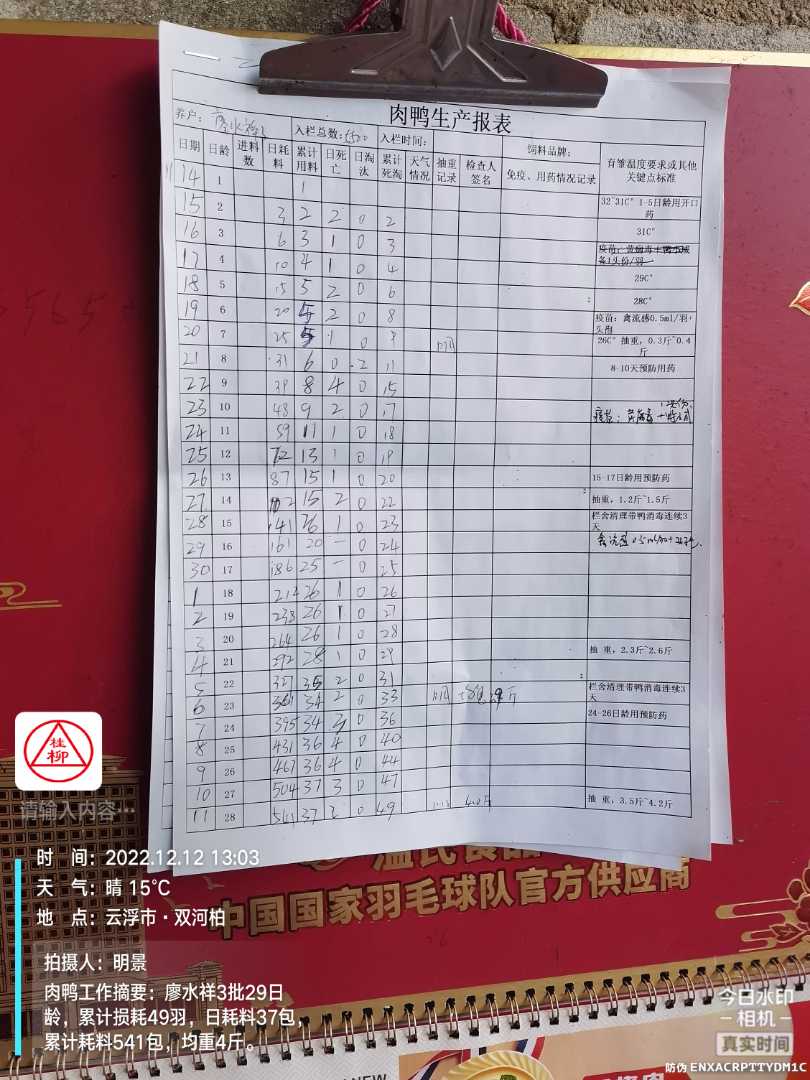 肉鸭生产报表
养户： 廖水祥 入栏总数： 入栏时间： 饲料品牌： 育雏温度要求或其他关键点标准
日期 日龄 进料数 日耗料 累计用料 日死亡 日淘汰 累计死淘 天气情况 抽重记录 检查人签名 免疫、用药情况记录
14 1 1
15 2 3 2 2 0 2 32~31C° 1-5日龄用开口药
16 3 6 3 1 0 3 31C°
17 4 10 4 1 0 4
18 5 15 5 2 0 6 29C°
19 6 20 5 2 0 8 28C°
20 7 25 5 1 0 9 疫苗：禽流感0.5ml/羽+头孢
26C° 抽重，0.3斤~0.4斤
21 8 31 6 0 2 11 8-10天预防用药
22 9 39 8 4 0 15
23 10 48 9 2 0 17
24 11 59 11 1 0 18
25 12 72 13 1 0 19
26 13 87 15 1 0 20 15-17日龄用预防药
27 14 102 15 2 0 22 抽重，1.2斤~1.5斤
28 15 141 26 1 0 23 栏舍清理带鸭消毒连续3天
29 16 161 20 一 0 24
30 17 186 25 一 0 25
1 18 212 26 1 0 26
2 19 238 26 1 0 27
3 20 264 26 1 0 28
4 21 292 28 1 0 29 抽 重，2.3斤~2.6斤
5 22 327 35 2 0 31
6 23 361 34 2 0 33 栏舍清理带鸭消毒连续3天
7 24 395 34 3 0 36 24-26日龄用预防药
8 25 431 36 4 0 40
9 26 467 36 4 0 44
10 27 504 37 3 0 47
11 28 541 37 2 0 49 抽 重，3.5斤~4.2斤
中国国家羽毛球队官方供应商
桂柳
请输入内容…
时 间：2022.12.12 13:03
天 气：晴 15℃
地 点：云浮市·双河柏
拍摄人：明景
肉鸭工作摘要：廖水祥3批29日
龄，累计损耗49羽，日耗料37包，
累计耗料541包，均重4斤。
今日水印
相机
真实时间
防伪 ENXACRPTTYDM1C